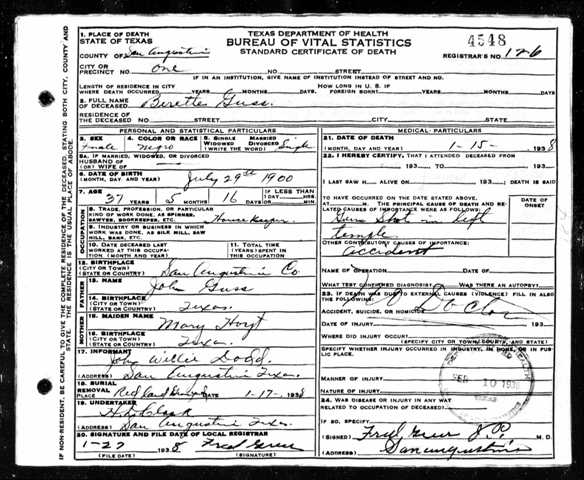 TEXAS DEPARTMENT OF HEALTH
BUREAU OF VITAL STATISTICS
STANDARD CERTIFICATE OF DEATH
4548
REGISTRAR'S NO. 126
1. PLACE OF DEATH
STATE OF TEXAS
COUNTY OF San Augustine
CITY OR
PRECINCT NO. One NO. STREET
IF IN AN INSTITUTION, GIVE NAME OF INSTITUTION INSTEAD OF STREET AND NO.
LENGTH OF RESIDENCE
WHERE DEATH OCCURRED YEARS MONTHS DAYS
HOW LONG IN U. S. IF
FOREIGN BORN? YEARS MONTHS DAYS
2. FULL NAME
OF DECEASED
RESIDENCE OF
THE DECEASED NO. STREET CITY STATE
PERSONAL AND STATISTICAL PARTICULARS
3. SEX
Female
4. COLOR OR RACE
Negro
5. SINGLE MARRIED
WIDOWED DIVORCED
(WRITE THE WORD) Single
5A. IF MARRIED, WIDOWED, OR DIVORCED
HUSBAND OF
(OR) WIFE OF
6. DATE OF BIRTH
(MONTH, DAY, AND YEAR) July 29th 1900
7. AGE
37 YEARS 5 MONTHS 16 DAYS
IF LESS THAN
1 DAY
HOURS MIN.
OCCUPATION
8. TRADE, PROFESSION, OR PARTICULAR
KIND OF WORK DONE, AS SPINNER,
SAWYER, BOOKKEEPER, ETC. House Keeper
9. INDUSTRY OR BUSINESS IN WHICH
WORK WAS DONE, AS SILK MILL, SAW
MILL, BANK, ETC.
10. DATE DECEASED LAST
WORKED AT THIS OCCUPA-
TION (MONTH AND YEAR)
11. TOTAL TIME
(YEARS) SPENT IN
THIS OCCUPATION
12. BIRTHPLACE
(CITY OR TOWN)
(STATE) San Augustine Co
FATHER
13. NAME
John Guss
14. BIRTHPLACE
(CITY OR TOWN)
(STATE) Texas
MOTHER
15. MAIDEN NAME
Mary Hoyt
16. BIRTHPLACE
(CITY OR TOWN)
(STATE) Texas
17. INFORMANT
John Willie Dodd
(ADDRESS) San Augustine Texas
18. BURIAL
REMOVAL
PLACE Red Land DATE 1-17-1938
19. UNDERTAKER
Clark
(ADDRESS) San Augustine Texas
20. SIGNATURE AND FILE DATE OF LOCAL REGISTRAR
1-27 1938 Fred Greer
(FILE DATE) (SIGNATURE)
MEDICAL PARTICULARS
21. DATE OF DEATH
(MONTH, DAY, AND YEAR) 1-15- 1938
22. I HEREBY CERTIFY, THAT I ATTENDED DECEASED FROM
193 TO 193
I LAST SAW H ALIVE ON 193 DEATH IS SAID
TO HAVE OCCURRED ON THE DATE STATED ABOVE AT M.
THE PRINCIPAL CAUSE OF DEATH AND RE-
LATED CAUSES OF IMPORTANCE WERE AS
FOLLOWS:
DATE OF
ONSET
Gun Shot in left
temple
OTHER CONTRIBUTORY CAUSES OF IMPORTANCE:
accident
NAME OF OPERATION DATE OF
WHAT TEST CONFIRMED DIAGNOSIS? WAS THERE AN AUTOPSY?
23. IF DEATH WAS DUE TO EXTERNAL CAUSES (VIOLENCE) FILL IN ALSO
THE FOLLOWING:
ACCIDENT, SUICIDE, OR HOMICIDE?
DATE OF INJURY 193
WHERE DID INJURY OCCUR?
(SPECIFY CITY OR TOWN, COUNTY, AND STATE)
SPECIFY WHETHER INJURY OCCURRED IN INDUSTRY, IN HOME, OR IN PUB-
LIC PLACE.
MANNER OF INJURY
NATURE OF INJURY
24. WAS DISEASE OR INJURY IN ANY WAY RELATED TO
OCCUPATION OF DECEASED?
IF SO, SPECIFY
(SIGNED) Fred Greer J.P. M. D.
(ADDRESS) San augustine
10 1938
TEXAS